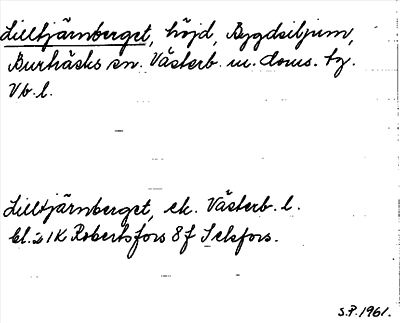 Lilltjärnberget, höjd, Bygdsiljum,
Burträsks sn. Västerb. m. doms. tg.
Vb. l.
Lilltjärnberget, ek. Västerb. l.
bl. 21K Robertsfors 8 f Selsfors.
S.P. 1961.